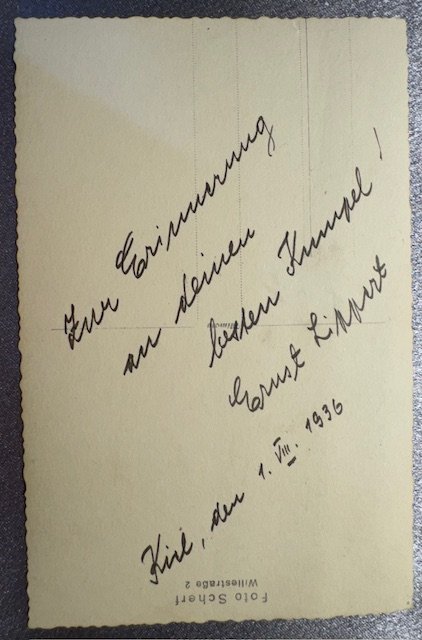 Zur Erinnerung
an deinen
besten Kumpel!
Ernst Lippert
Kiel, den 1. VIII. 1936
Foto Scherf
Willestraße 2